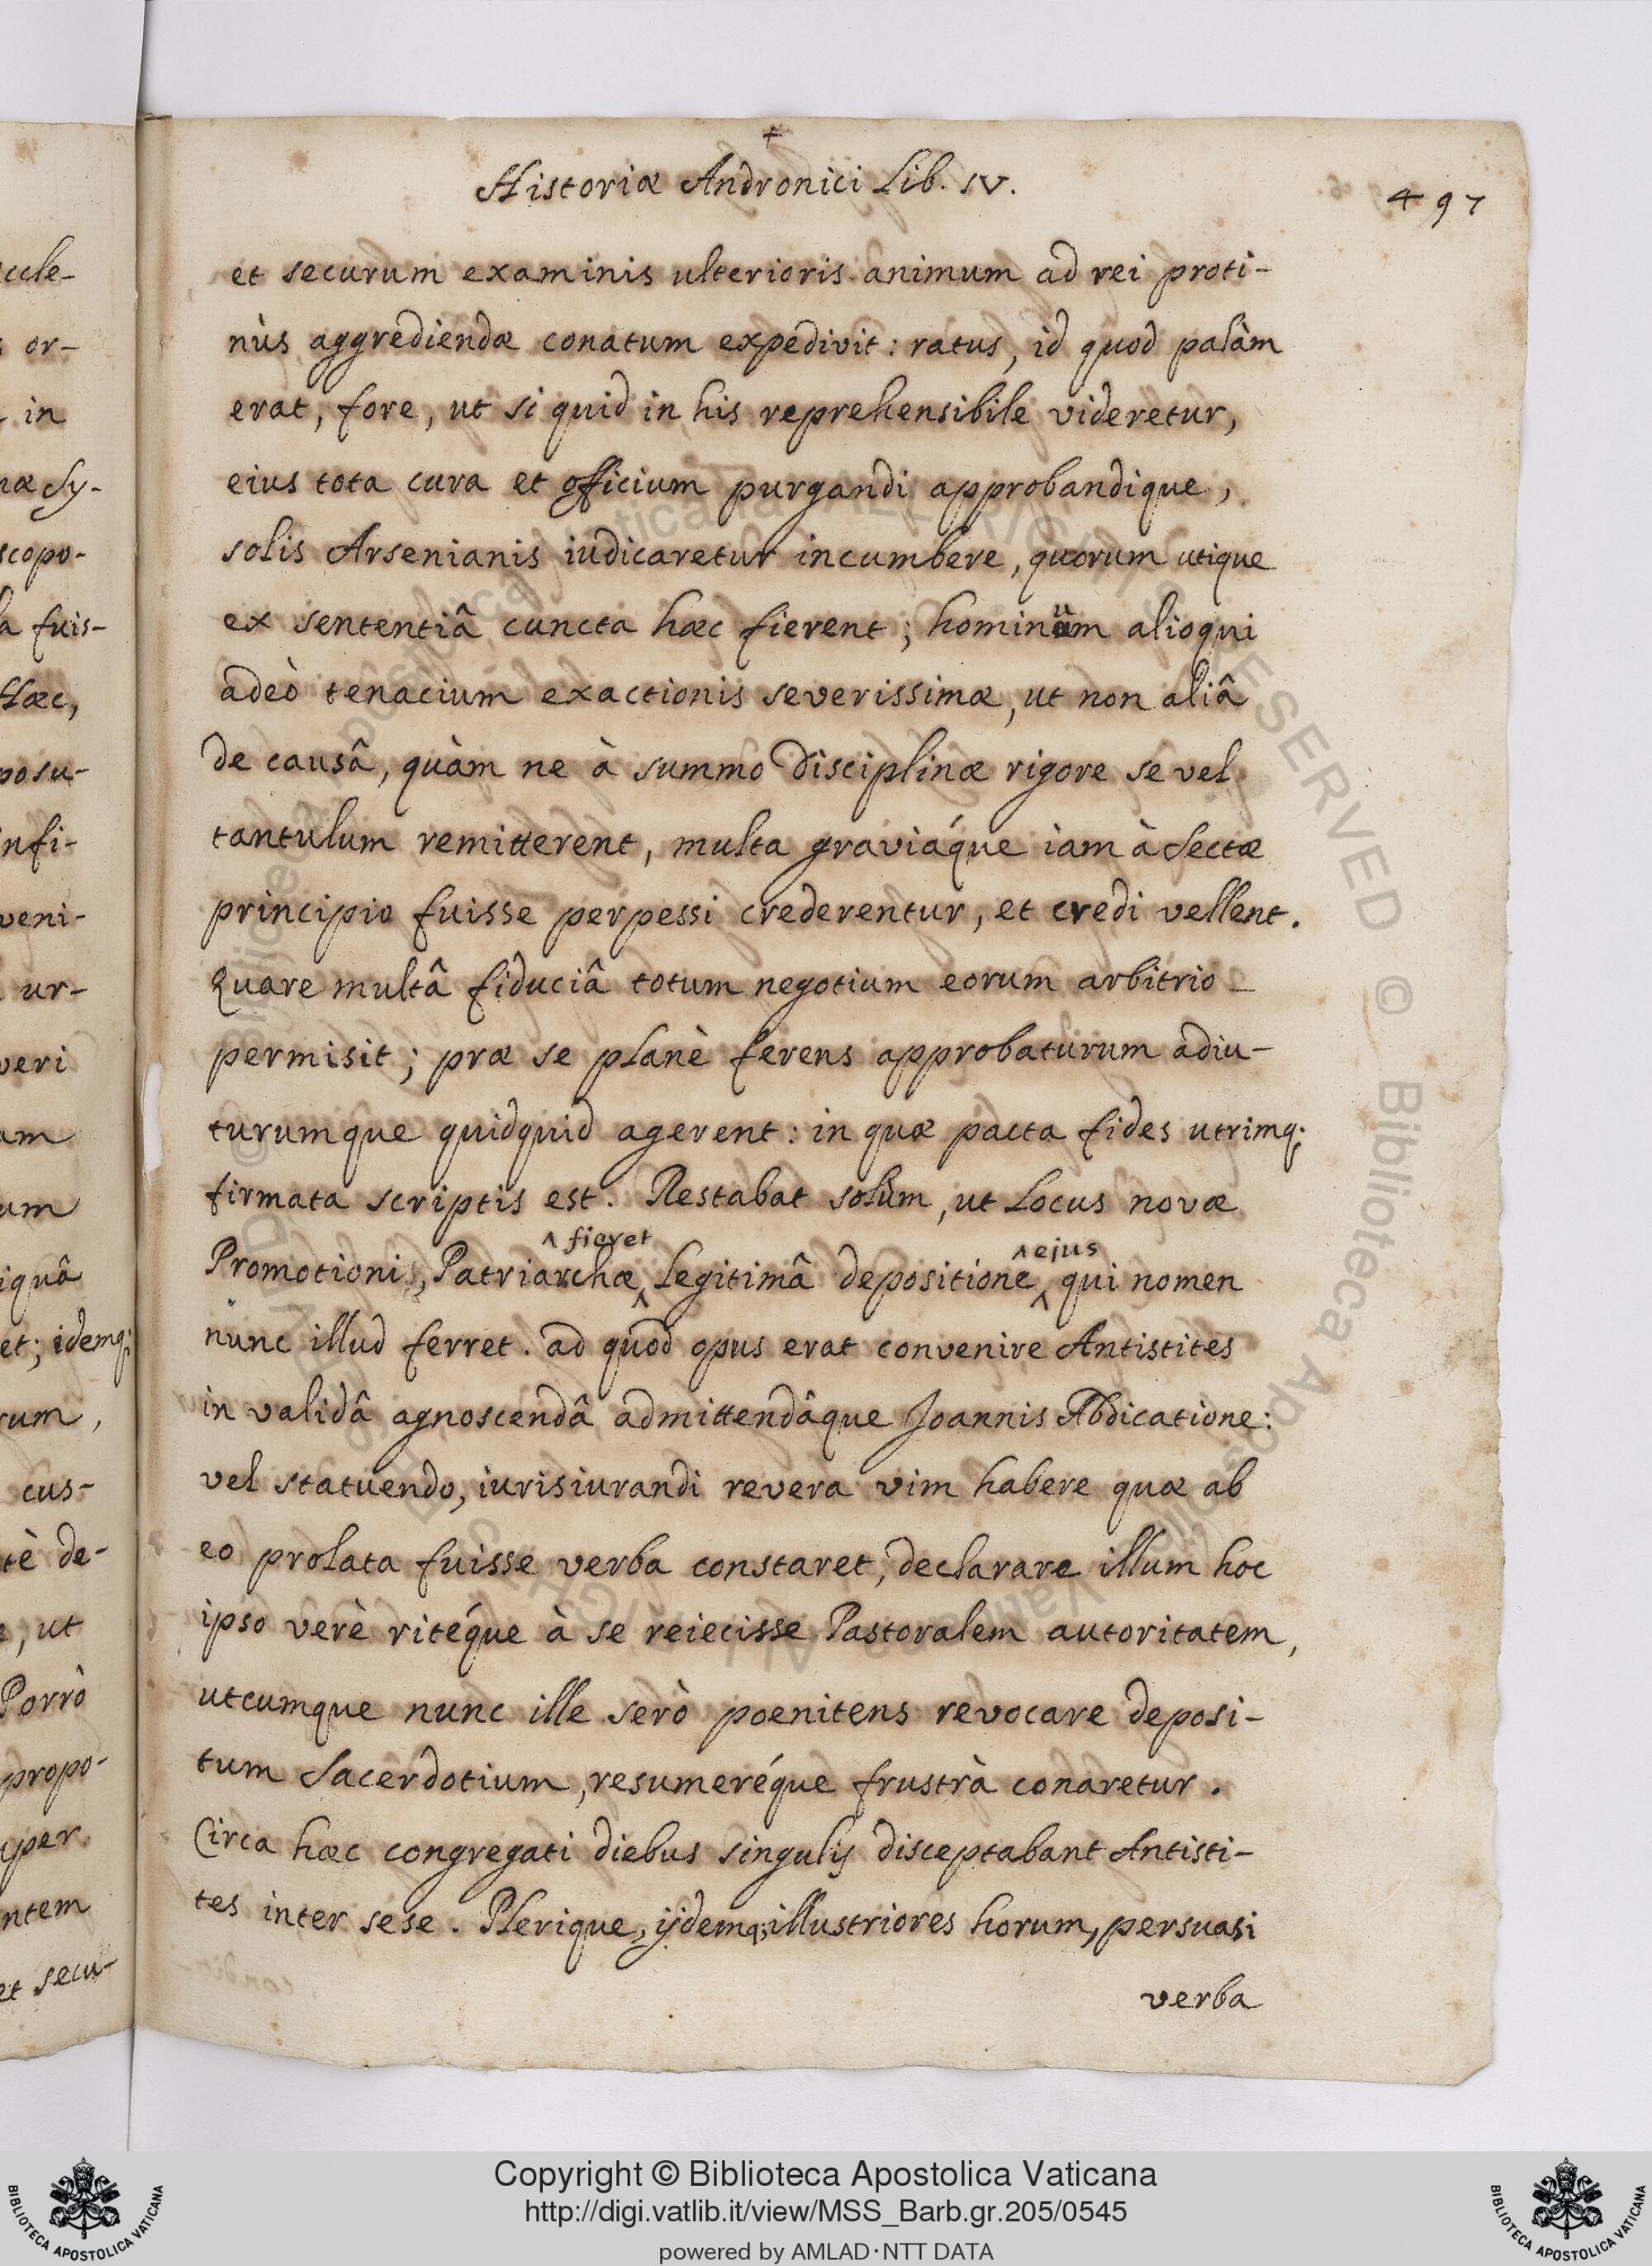 +
Historiæ Andronici Lib. IV.
497
et securum examinis ulterioris animum ad rei proti-
nùs aggrediendæ conatum expedivit: ratus, id quod palàm
erat, fore, ut si quid in his reprehensibile videretur,
eius tota cura et officium purgandi approbandique,
solis Arsenianis iudicaretur incumbere, quorum utique
ex sententiâ cuncta hæc fierent; hominum alioqui
adeò tenacium exactionis severissimæ, ut non aliâ
de causâ, quàm ne à summo disciplinæ rigore se vel
tantulum remitterent, multa graviáque iam à Sectæ
principio fuisse perpessi crederentur, et credi vellent.
Quare multâ fiduciâ totum negotium eorum arbitrio
permisit; præ se planè ferens approbaturum adiu-
turumque quidquid agerent: in quæ pacta fides utrimq;
firmata scriptis est. Restabat solùm, ut Locus novæ
^ fieret ^ ejus
Promotioni, Patriarchæ ^ Legitimâ depositione ^ qui nomen
nunc illud ferret. ad quod opus erat convenire Antistites
in validâ agnoscendâ admittendâque Joannis Abdicatione:
vel statuendo, iurisiurandi revera vim habere quæ ab
eo prolata fuisse verba constaret, declarare illum hoc
ipso verè ritéque à se reiecisse Pastoralem autoritatem,
utcumque nunc ille serò poenitens revocare deposi-
tum Sacerdotium, resumeréque frustrà conaretur.
Circa hæc congregati diebus singulis disceptabant Antisti-
tes inter sese. Plerique, ijdemq; illustriores horum, persuasi
verba
ccle-
or-
in
næ Sy-
scopo-
la fuis-
Hæc,
posu-
nfi-
veni-
ur-
veri
am
um
iquâ
et; idemq;
rum,
cus-
tè de-
, ut
Porrò
propo-
uper
ntem
et secu-
Copyright © Biblioteca Apostolica Vaticana
http://digi.vatlib.it/view/MSS_Barb.gr.205/0545
powered by AMLAD·NTT DATA
BIBLIOTECA APOSTOLICA VATICANA
BIBLIOTECA APOSTOLICA VATICANA